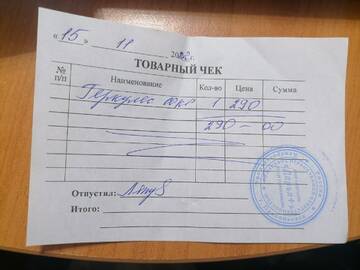 « 15 » 11 2022 г.
ТОВАРНЫЙ ЧЕК
№ п/п Наименование Кол-во Цена Сумма
Геркулес 1 290
290-00
Отпустил:
Итого: